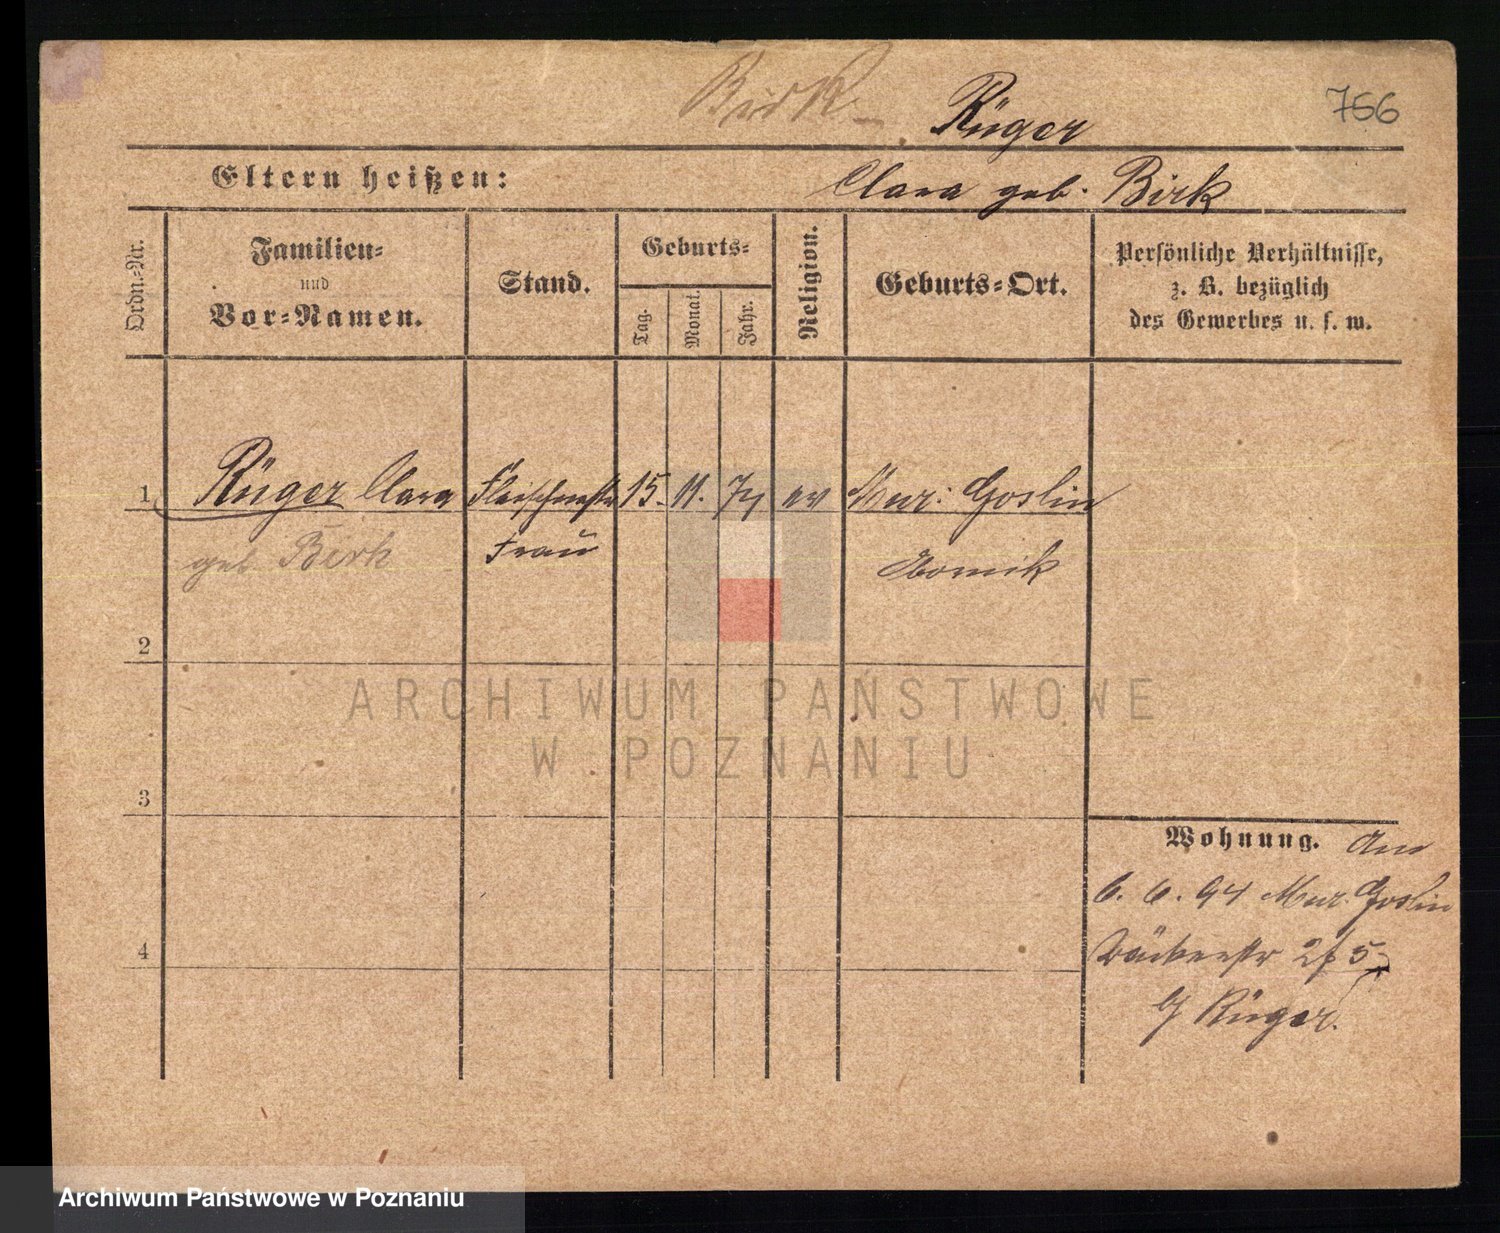 Birk
756
Rüger
Eltern heißen:
Clara geb. Birk
Ordn.-Nr.
Familien-
und
Vor-Namen.
Stand.
Geburts-
Tag.
Monat.
Jahr.
Religion.
Geburts-Ort.
Persönliche Verhältnisse,
z. B. bezüglich
des Gewerbes u. s. w.
1 Rüger Clara Fleischmstr 15. 11. 74 ev Mur: Goslin
geb Birk Frau
2
ARCHIWUM PAŃSTWOWE
W POZNANIU
3
Wohnung. An
6. 6. 94 Mur. Goslin
4
Bäckerstr 2 5
Rüger.
Archiwum Państwowe w Poznaniu